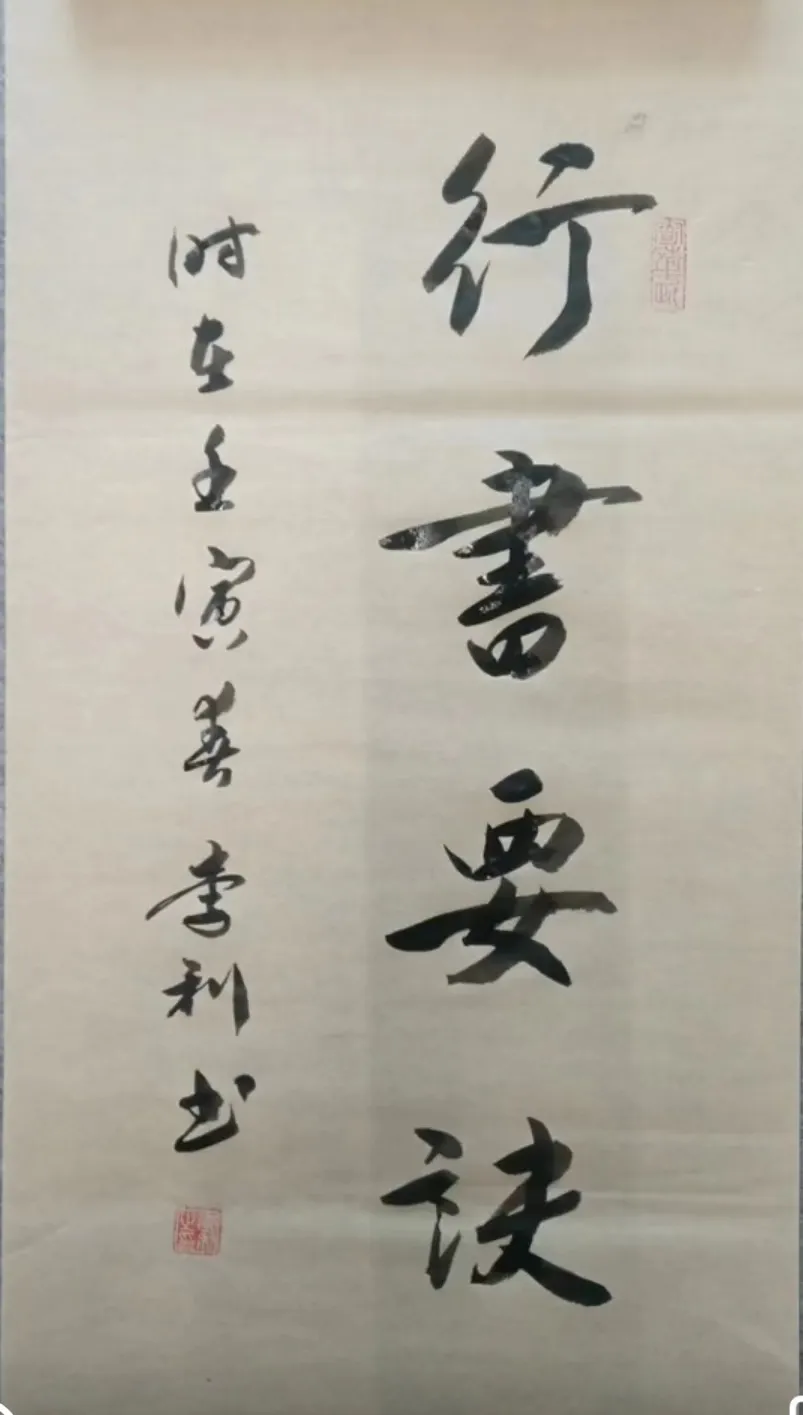 行書要诀
时在壬寅春李利书